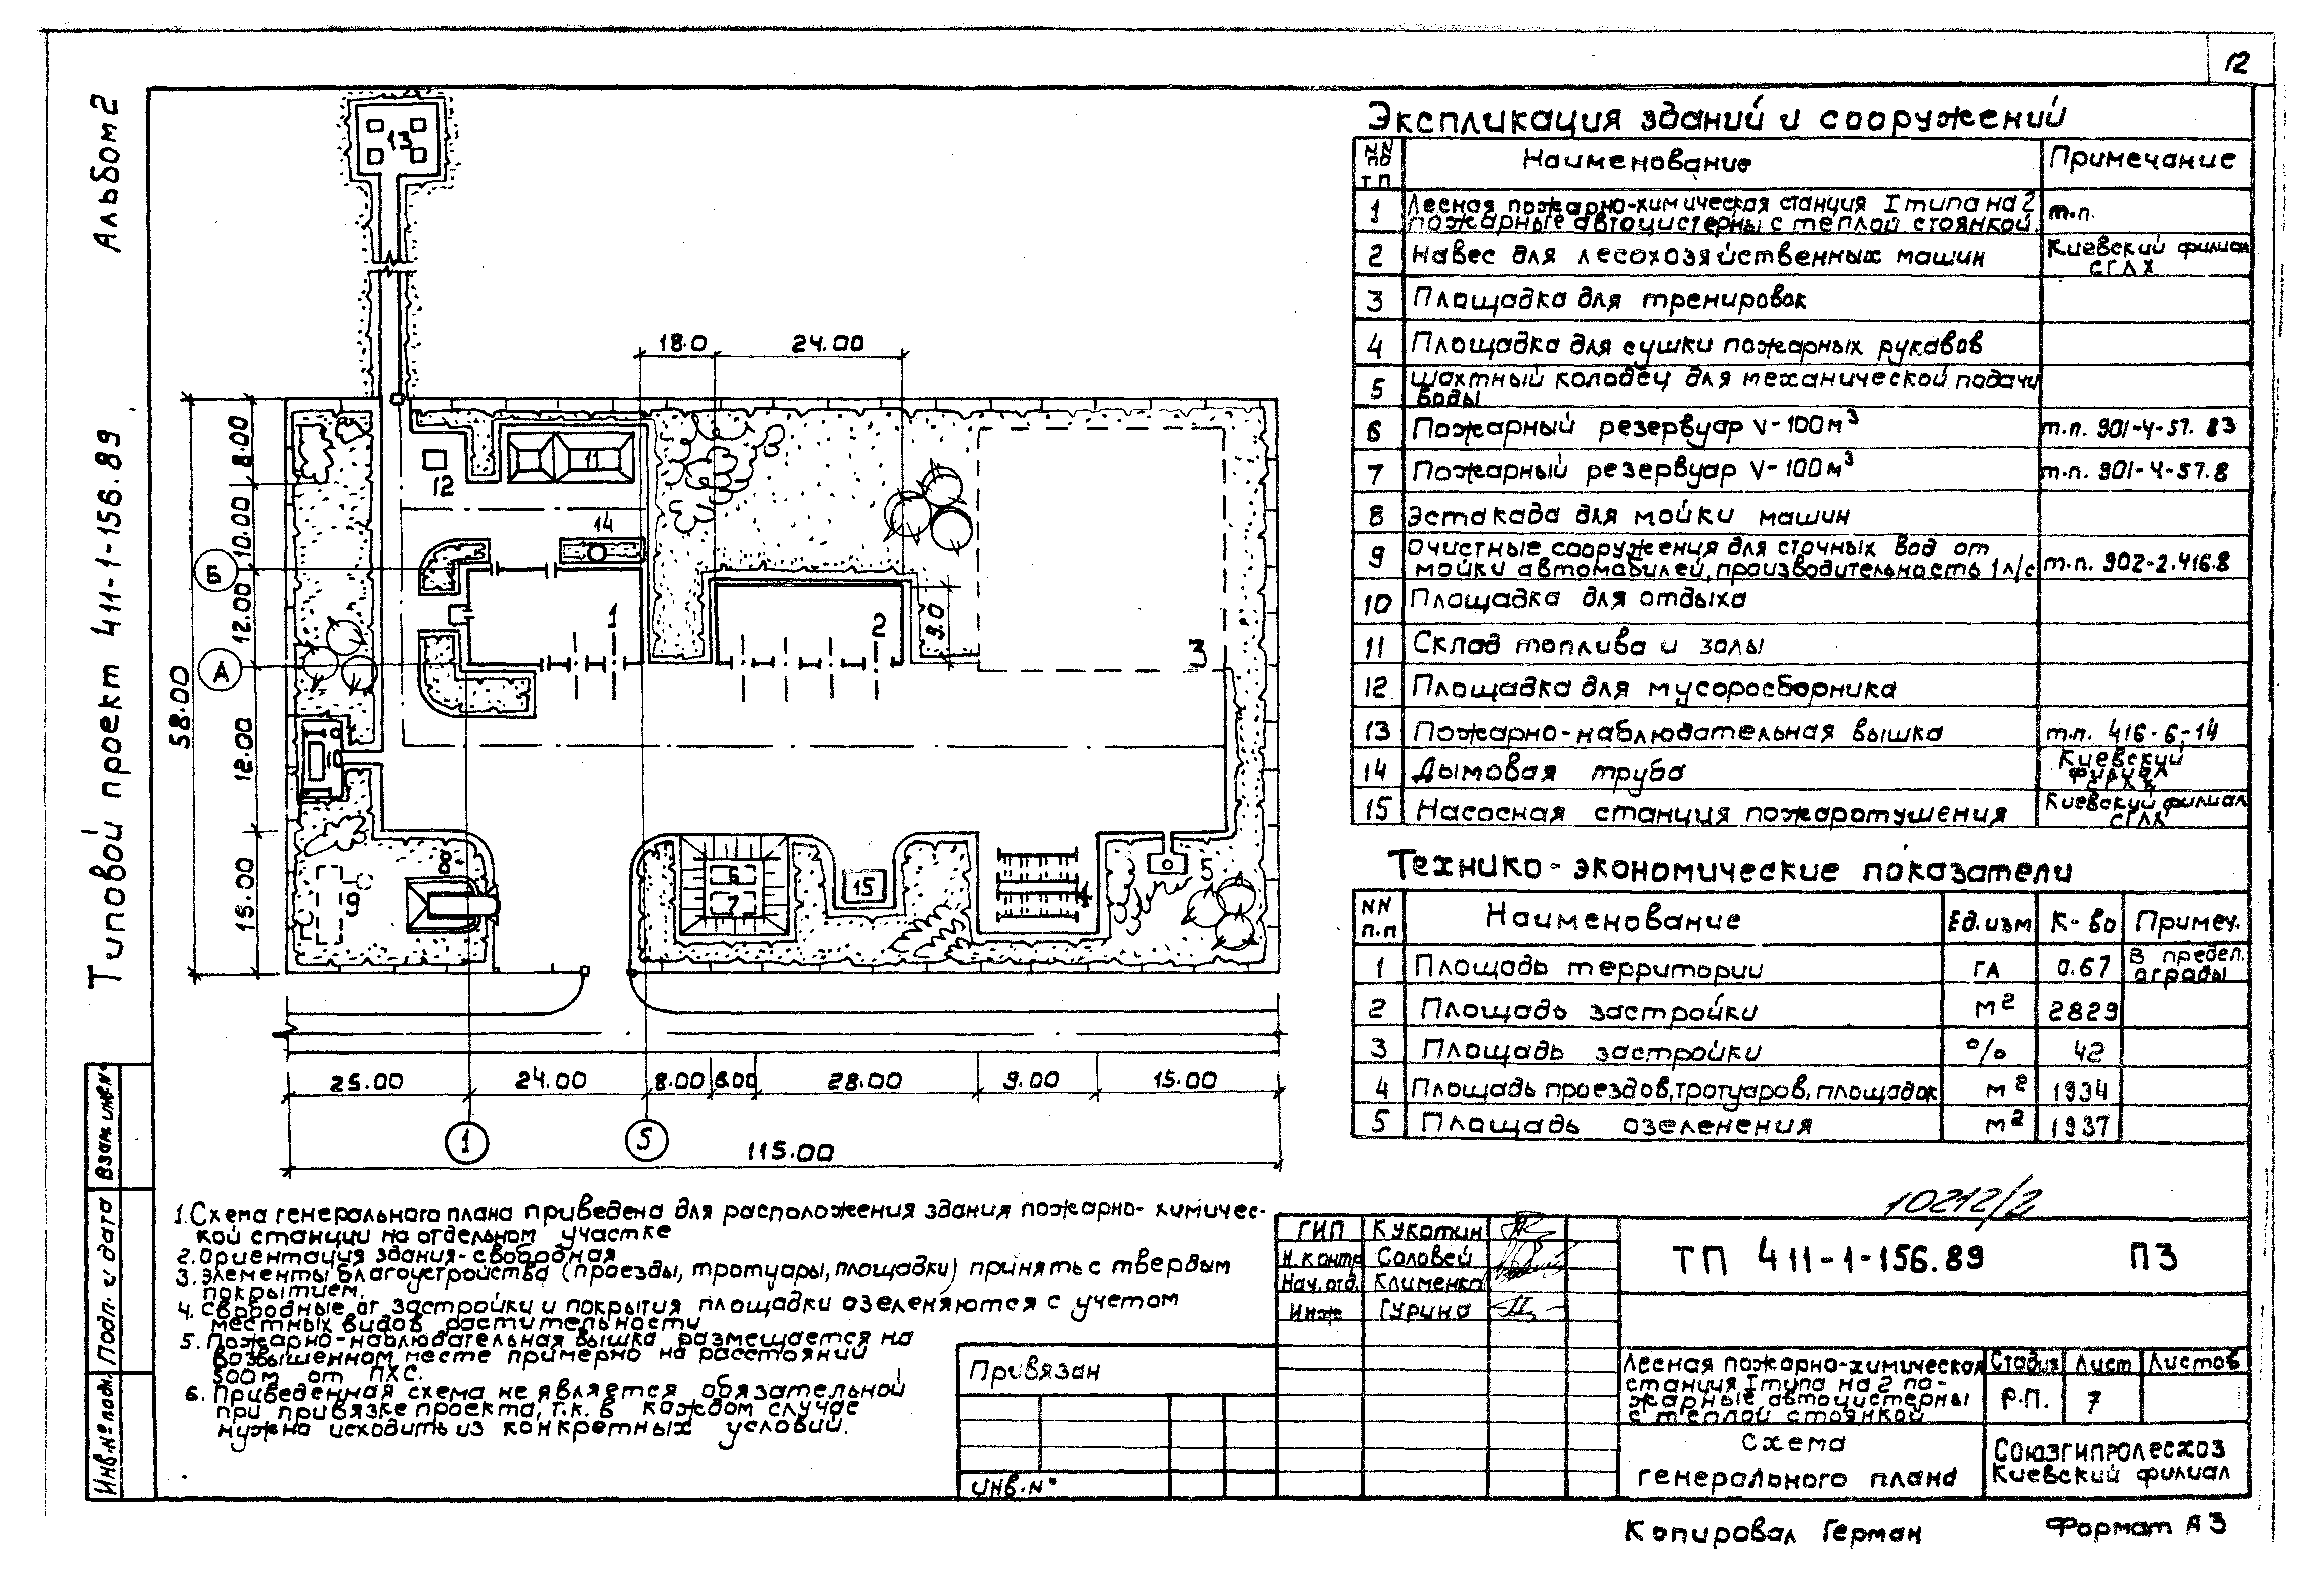 12
Альбом 2
Типовой проект 411-1-156.89
Экспликация зданий и сооружений
NN по т п
Наименование
Примечание
1 Лесная пожарно-химическая станция I типа на 2
пожарные автоцистерны с теплой стоянкой.
т.п.
2 Навес для лесохозяйственных машин
Киевский филиал
СГЛХ
3 Площадка для тренировок
4 Площадка для сушки пожарных рукавов
5 Шахтный колодец для механической подачи
воды
6 Пожарный резервуар V-100м³ т.п. 901-4-57.83
7 Пожарный резервуар V-100м³ т.п. 901-4-57.8
8 Эстакада для мойки машин
9 Очистные сооружения для сточных вод от
мойки автомобилей, производительность 1л/с
т.п. 902-2.416.8
10 Площадка для отдыха
11 Склад топлива и золы
12 Площадка для мусоросборника
13 Пожарно-наблюдательная вышка т.п. 416-6-14
14 Дымовая труба
Киевский
филиал
СГЛХ
15 Насосная станция пожаротушения
Киевский филиал
СГЛХ
Технико-экономические показатели
NN п.п Наименование Ед.изм К-во Примеч.
1 Площадь территории га 0.67
В предел.
ограды
2 Площадь застройки м² 2829
3 Площадь застройки % 42
4 Площадь проездов, тротуаров, площадок м² 1934
5 Площадь озеленения м² 1937
13
18.0
24.00
58.00
8.00
10.00
12.00
12.00
16.00
Б
А
11
12
14
1
2
9.0
3
10
8
9
6
7
15
4
5
25.00
24.00
8.00
6.00
28.00
9.00
15.00
1
5
115.00
1. Схема генерального плана приведена для расположения здания пожарно-химичес-
кой станции на отдельном участке
2. Ориентация здания-свободная
3. Элементы благоустройства (проезды, тротуары, площадки) принять с твердым
покрытием.
4. Свободные от застройки и покрытия площадки озеленяются с учетом
местных видов растительности
5. Пожарно-наблюдательная вышка размещается на
возвышенном месте примерно на расстоянии
300м от ПХС.
6. Приведенная схема не является обязательной
при привязке проекта, т.к. в каждом случае
нужно исходить из конкретных условий.
Взам инв.№
Подп. и дата
Инв.№ подл.
Привязан
инв.№
10212/2
ГИП Кукотин
Н.контр Соловей
Нач.отд. Клименко
Инж Гурина
ТП 411-1-156.89 ПЗ
Лесная пожарно-химическая
станция I типа на 2 по-
жарные автоцистерны
с теплой стоянкой
Стадия Лист Листов
Р.П. 7
Схема
генерального плана
Союзгипролесхоз
Киевский филиал
Копировал Герман
Формат А3